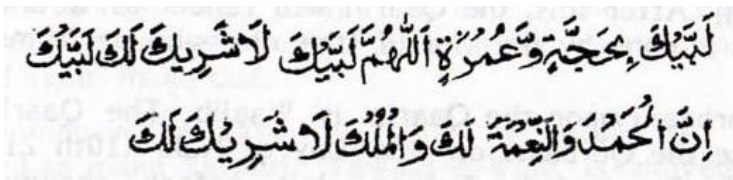 لَبَّيْكَ بِحَجَّةٍ وَّعُمْرَةٍ اَللّٰهُمَّ لَبَّيْكَ لَا شَرِيكَ لَكَ لَبَّيْكَ
اِنَّ الْحَمْدَ وَالنِّعْمَةَ لَكَ وَالْمُلْكَ لَا شَرِيْكَ لَكَ